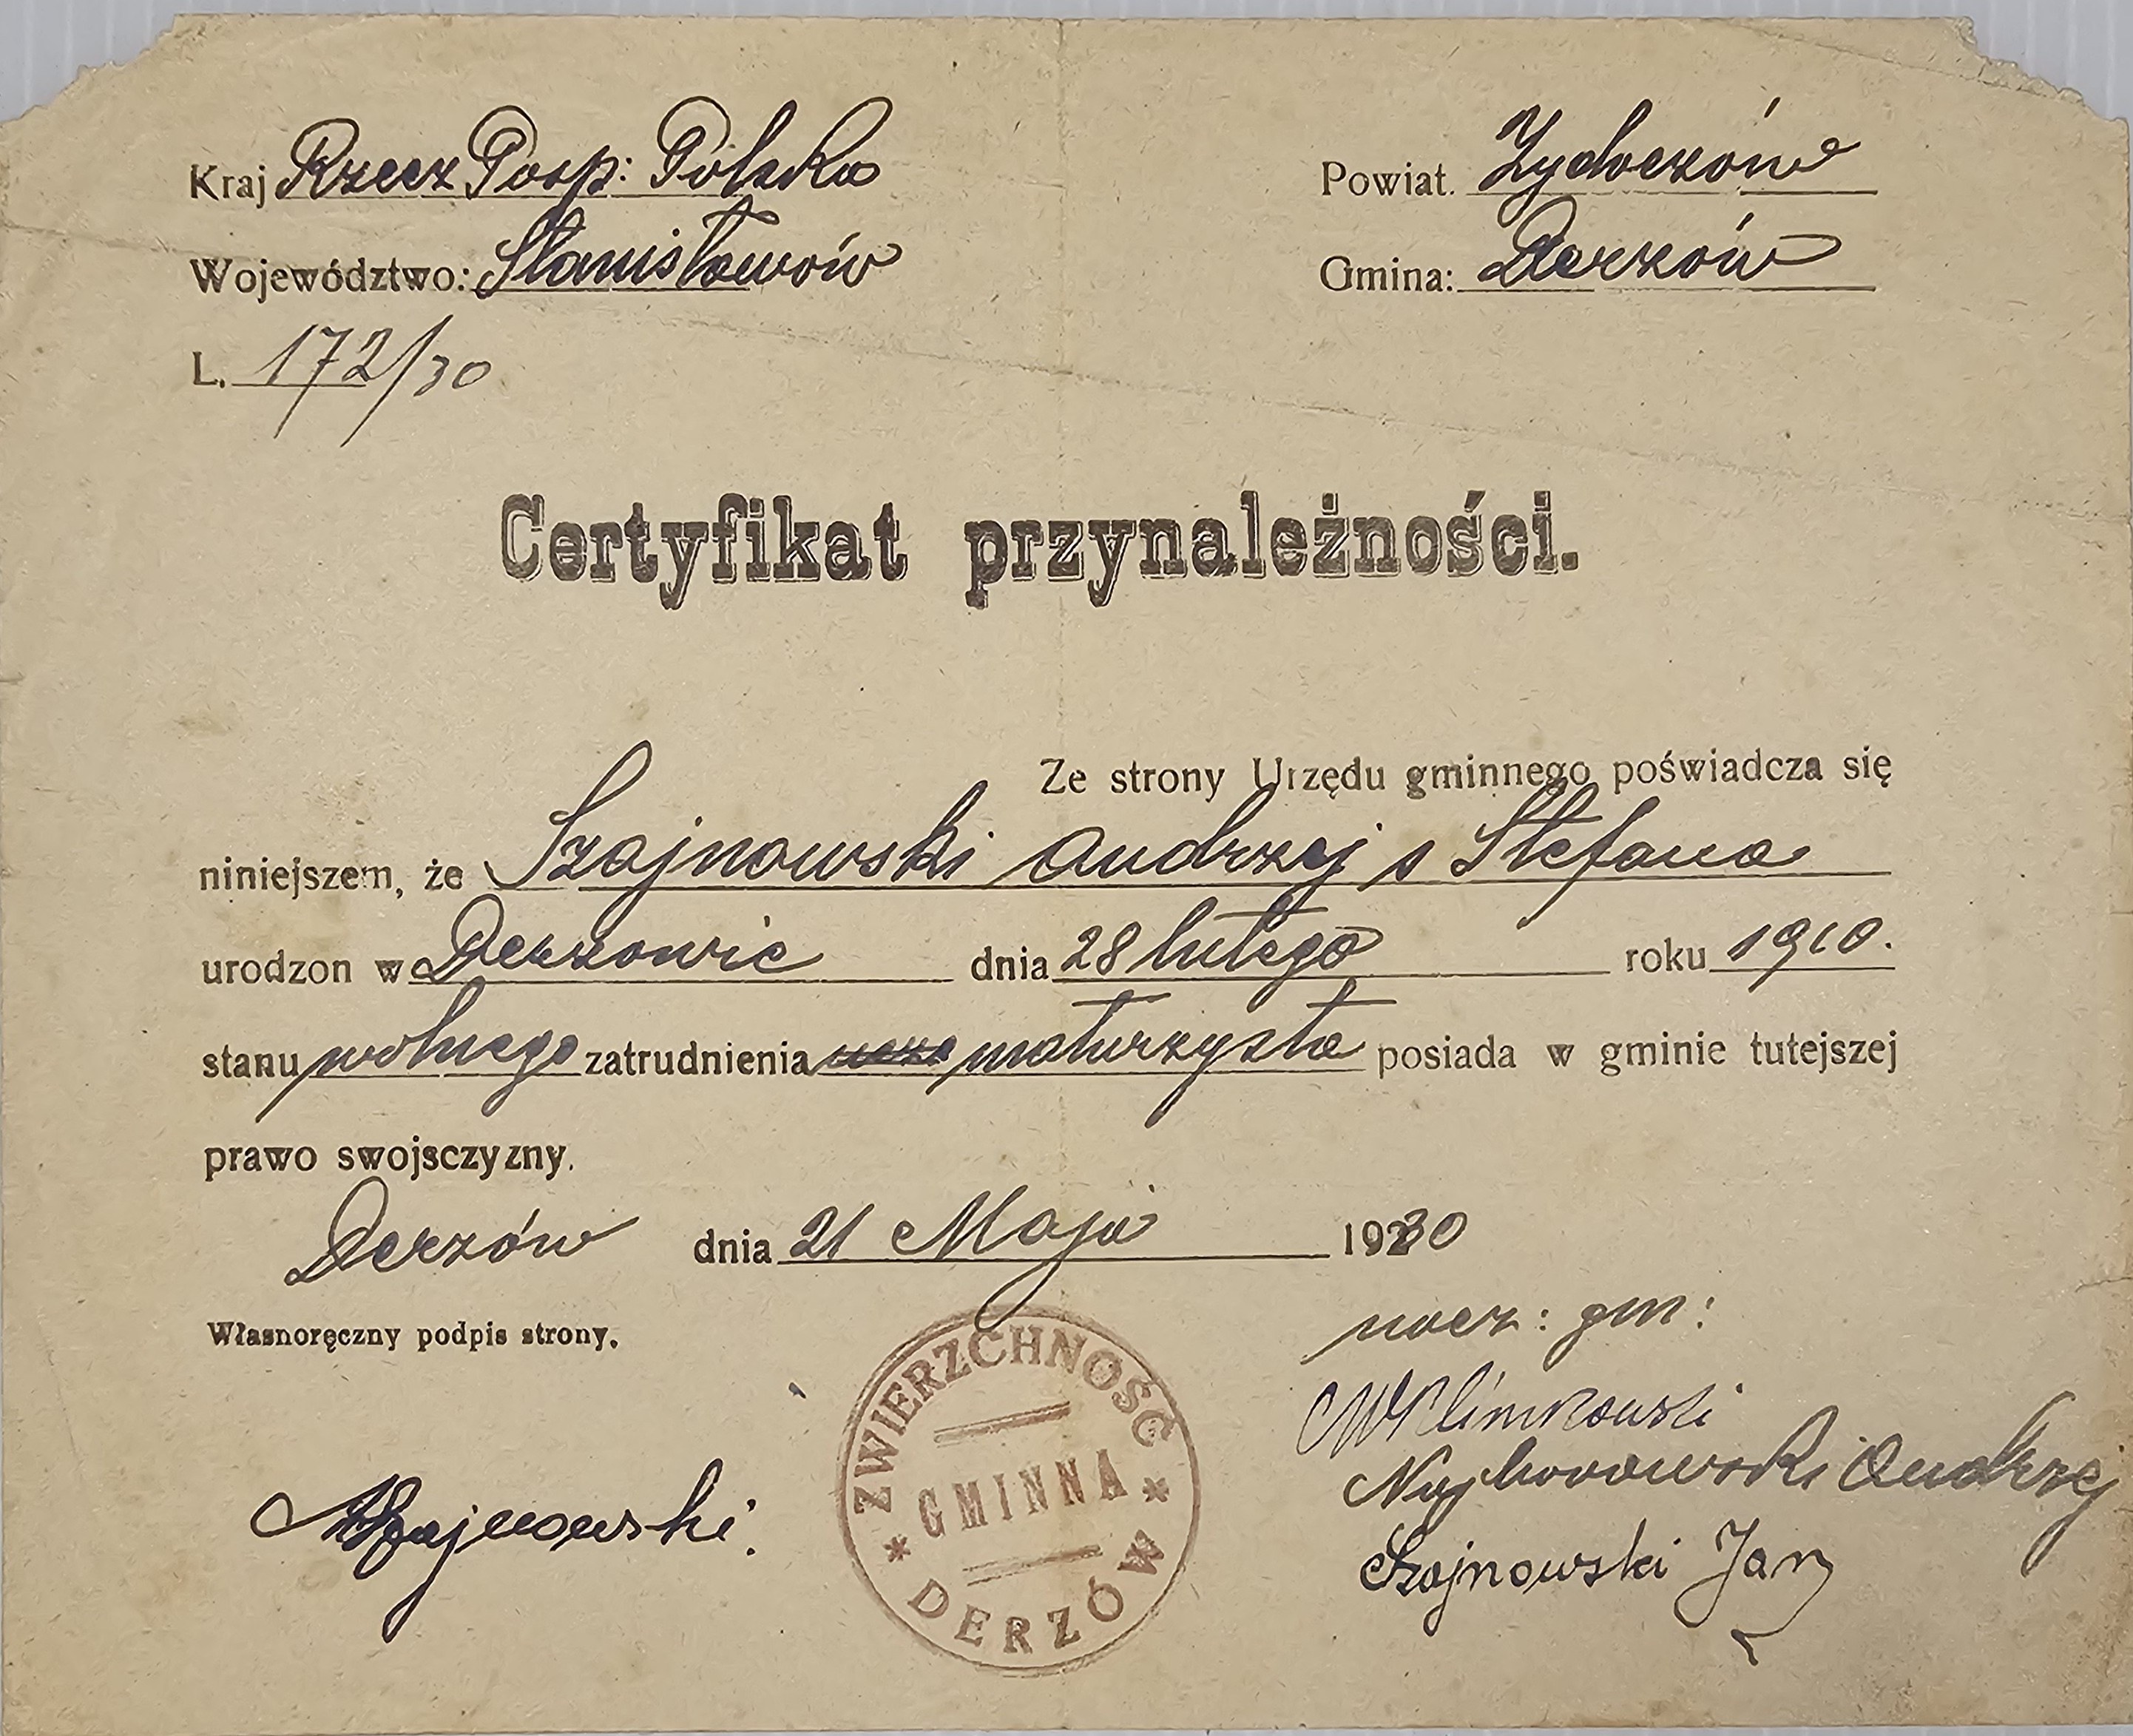 Kraj Rzecz Posp: Polska
Powiat. Żydoczów
Województwo: Stanisławów
Gmina: Derzów
L. 172/30
Certyfikat przynależności.
Ze strony Urzędu gminnego poświadcza się
niniejszem, że Szajnowski Andrzej s Stefana
urodzon w Derzowie dnia 28 lutego roku 1910.
stanu wolnego zatrudnienia maturzysta posiada w gminie tutejszej
prawo swojsczyzny.
Derzów dnia 21 Maja 1930
Własnoręczny podpis strony.
nacz: gm:
ZWIERZCHNOŚĆ
GMINNA
DERZÓW
WKlimkowski
Andrzej
ASzajnowski.
Szajnowski Jan